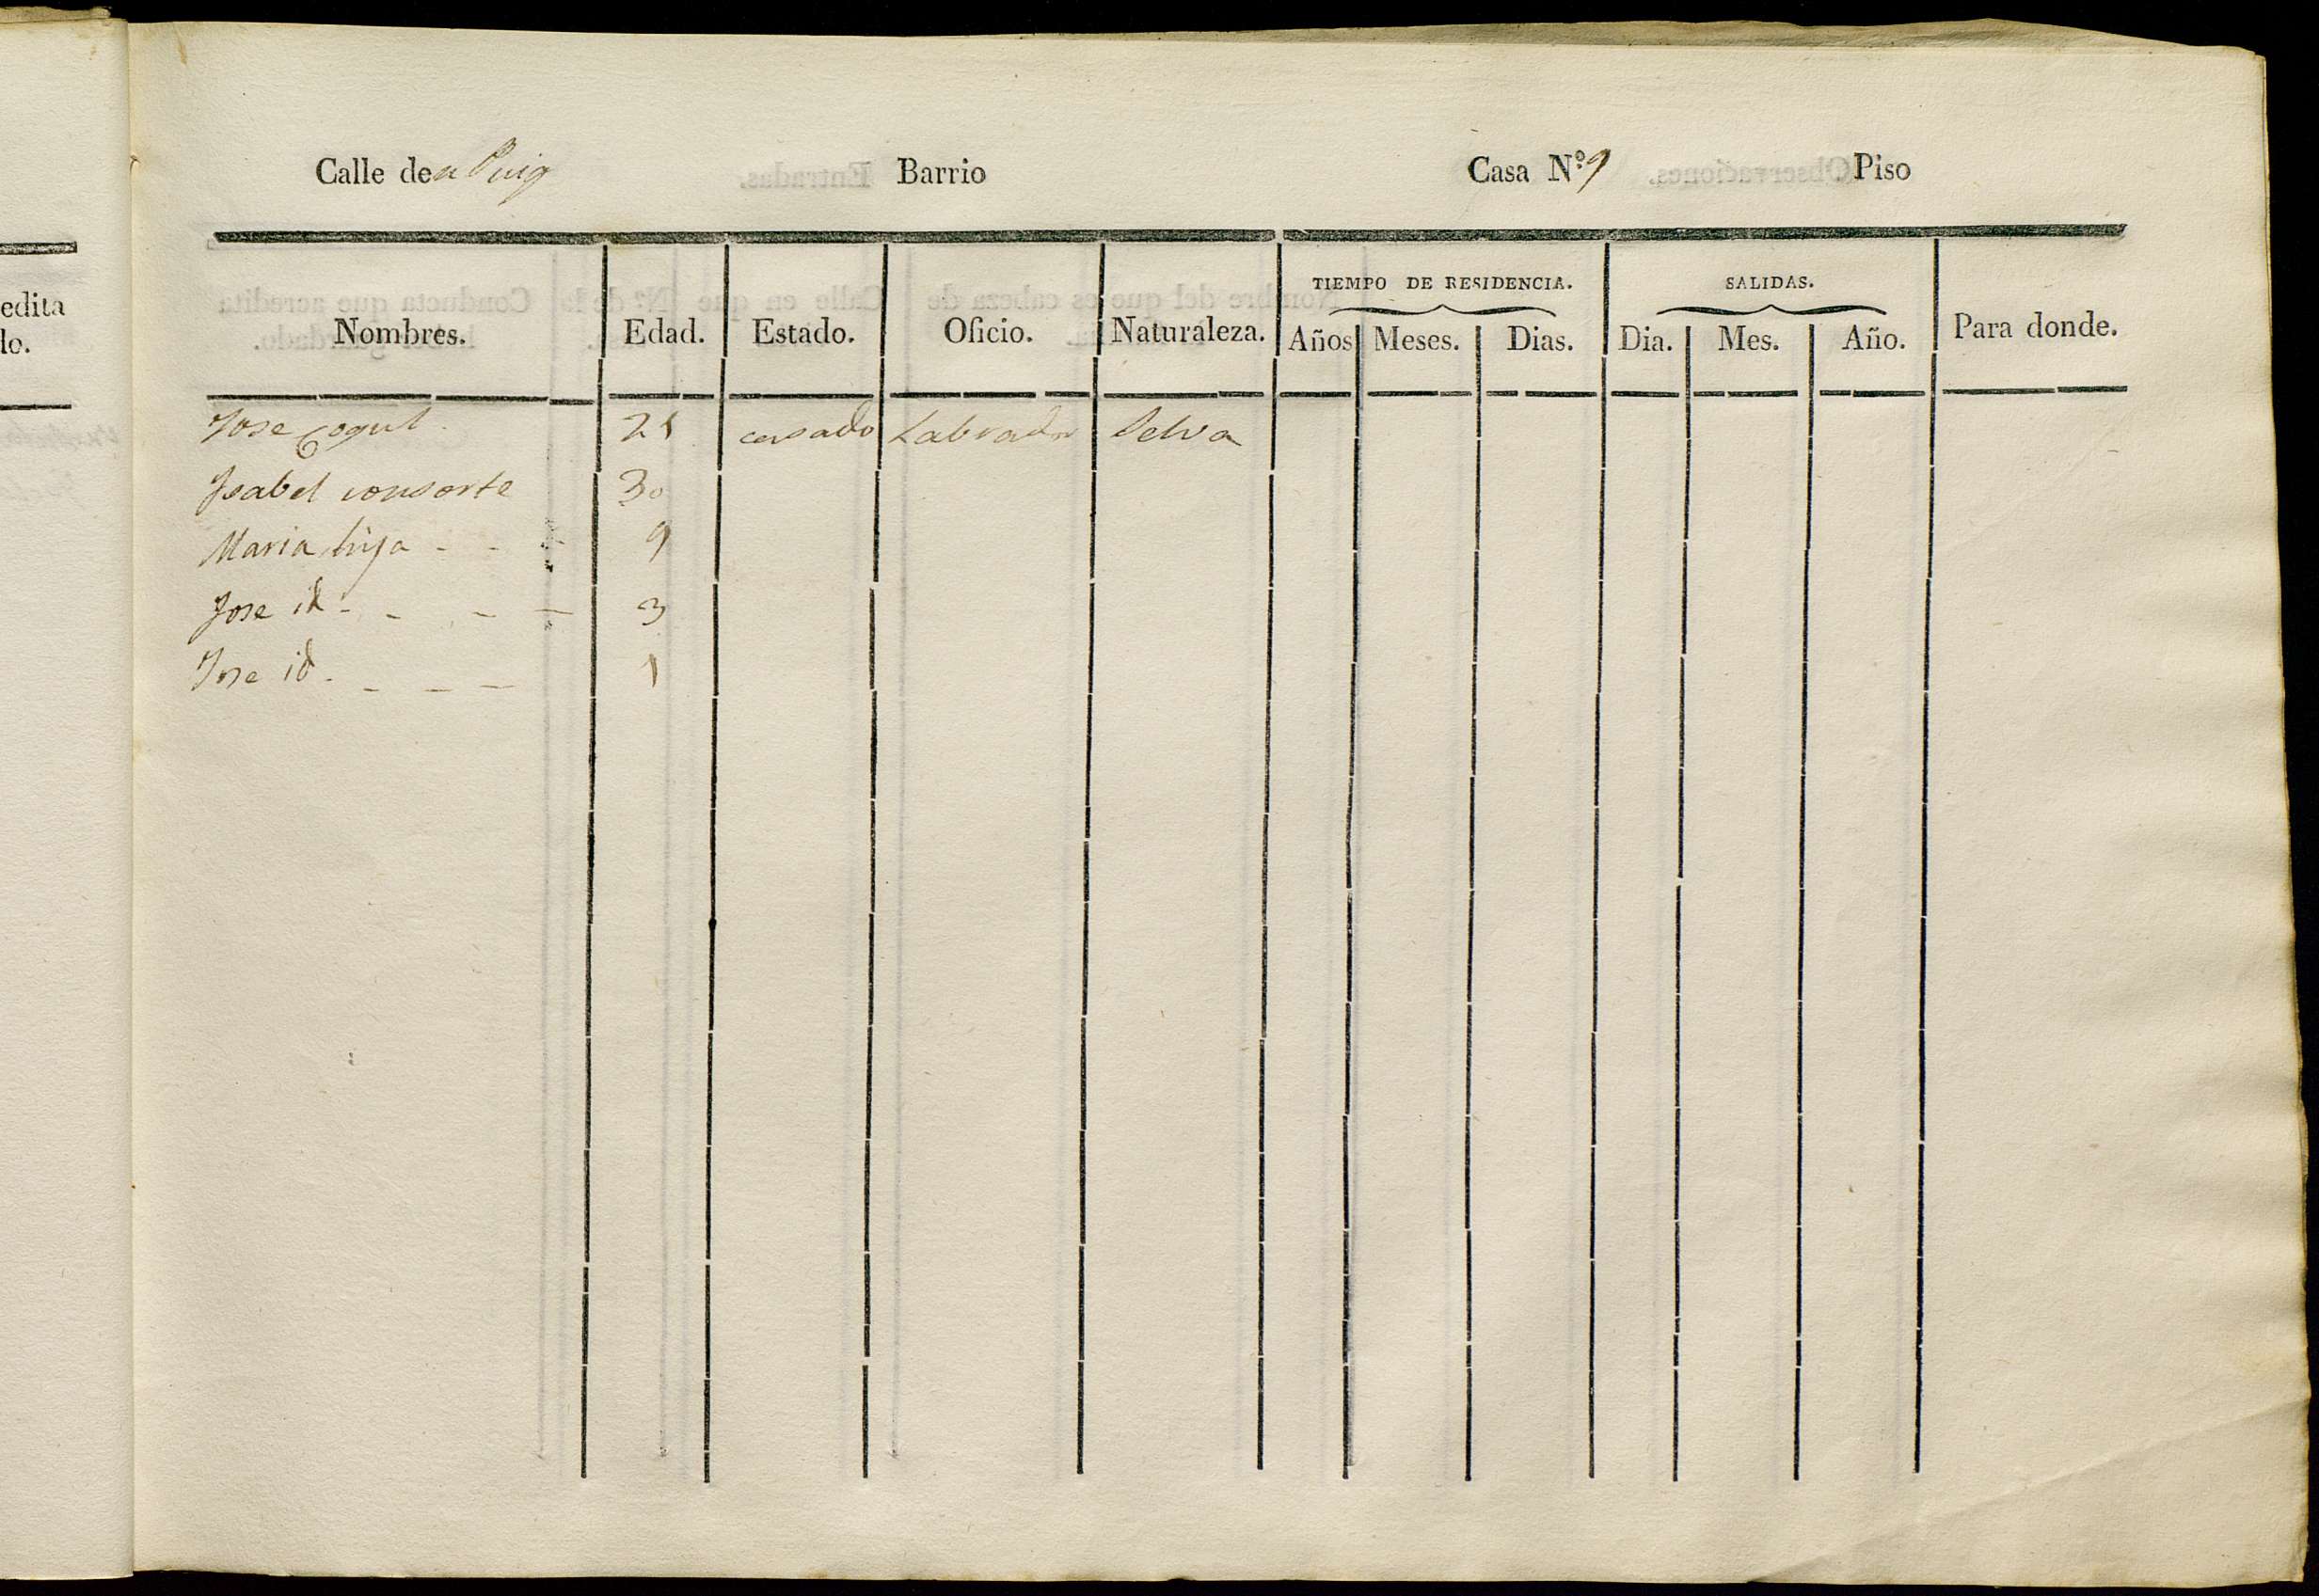 Calle den Puig Barrio Casa N.º 9 Piso
TIEMPO DE RESIDENCIA. SALIDAS.
Nombres. Edad. Estado. Oficio. Naturaleza. Años Meses. Dias. Dia. Mes. Año. Para donde.
Jose Cogul 21 casado Labrador Selva
Isabel consorte 30
Maria hija - - - 9
Jose id - - - - 3
Jose id - - - - 1
edita
do.